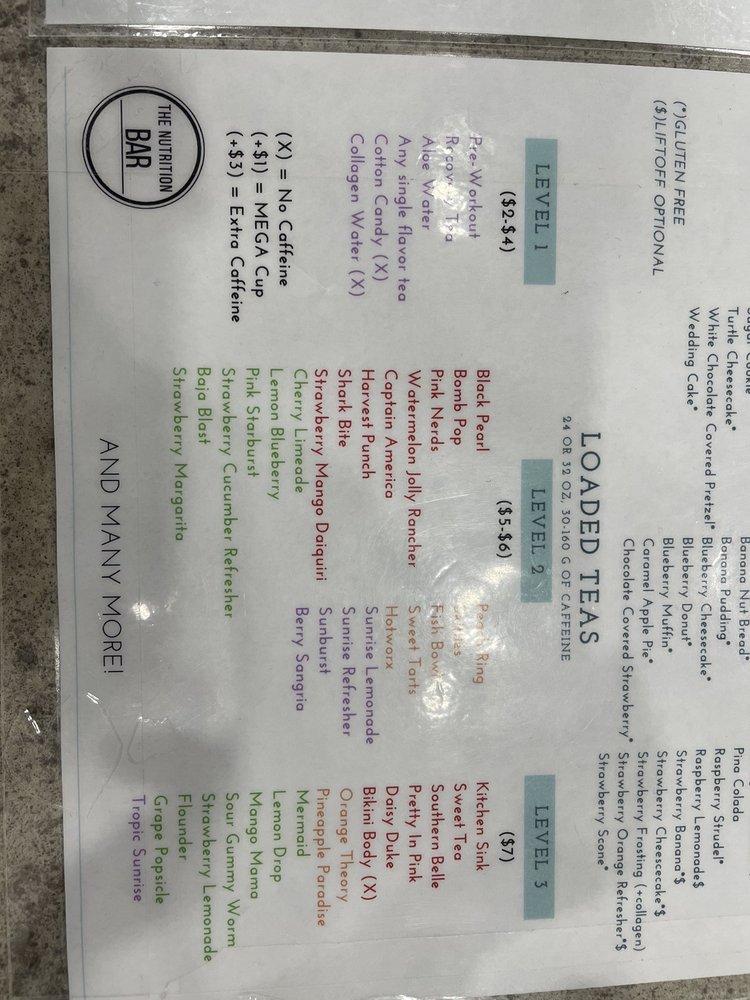 (*)GLUTEN FREE
($)LIFTOFF OPTIONAL
Turtle Cheesecake*
White Chocolate Covered Pretzel*
Wedding Cake*
Banana Nut Bread*
Banana Pudding*
Blueberry Cheesecake*
Blueberry Donut*
Blueberry Muffin*
Caramel Apple Pie*
Chocolate Covered Strawberry*
Pina Colada
Raspberry Strudel*
Raspberry Lemonade$
Strawberry Banana*$
Strawberry Cheescecake*$
Strawberry Frosting (+collagen)
Strawberry Orange Refresher*$
Strawberry Scone*
LOADED TEAS
24 OR 32 OZ, 30-160 G OF CAFFEINE
LEVEL 1
($2-$4)
Pre-Workout
Recovery Tea
Aloe Water
Any single flavor tea
Cotton Candy (X)
Collagen Water (X)
(X) = No Caffeine
(+$1) = MEGA Cup
(+$3) = Extra Caffeine
THE NUTRITION
BAR
LEVEL 2
($5-$6)
Black Pearl
Bomb Pop
Pink Nerds
Watermelon Jolly Rancher
Captain America
Harvest Punch
Shark Bite
Strawberry Mango Daiquiri
Cherry Limeade
Lemon Blueberry
Pink Starburst
Strawberry Cucumber Refresher
Baja Blast
Strawberry Margarita
Peach Ring
Fish Bowl
Sweet Tarts
Hotworx
Sunrise Lemonade
Sunrise Refresher
Sunburst
Berry Sangria
LEVEL 3
($7)
Kitchen Sink
Sweet Tea
Southern Belle
Pretty In Pink
Daisy Duke
Bikini Body (X)
Orange Theory
Pineapple Paradise
Mermaid
Lemon Drop
Mango Mama
Sour Gummy Worm
Strawberry Lemonade
Flounder
Grape Popsicle
Tropic Sunrise
AND MANY MORE!